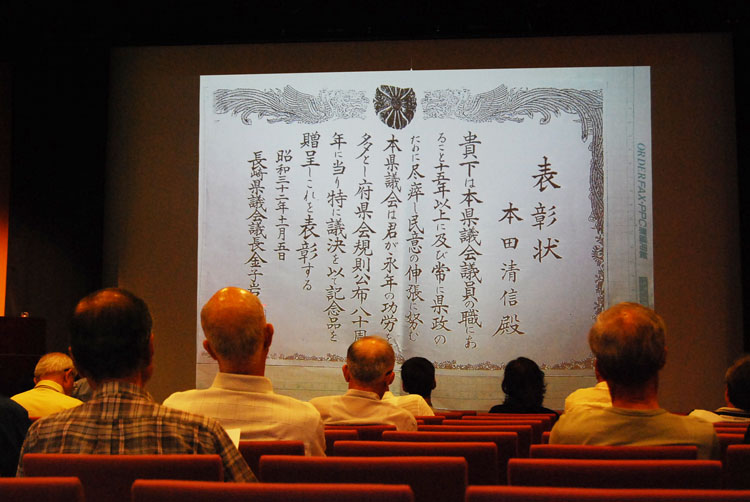 表彰状
本田清信殿
貴下は本県議会議員の職にあ
ること十五年以上に及び常に県政の
ために尽瘁し民意の伸張に努む
本県議会は君が永年の功労を
多とし府県会規則公布八十周
年に当り特に議決を以て記念品を
贈呈しこれを表彰する
昭和三十二年十一月五日
長崎県議会議長金子岩
ORDER FAX・PPC